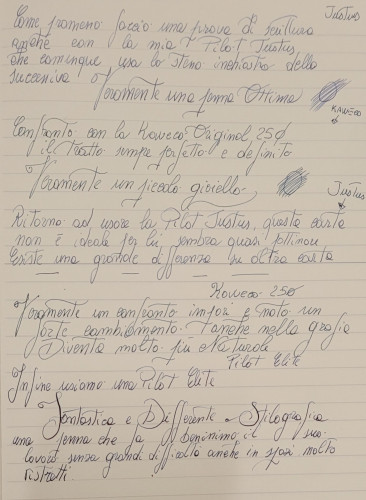 Justus
Come promemo faccio una prova di scrittura
anche con la mia Pilot Justus
che comunque usa lo stesso inchiostro della
successiva
Veramente una penna Ottima
KAWECO
Confronto con la Kaweco Original, 250
il tratto sempre perfetto e definito
Veramente un piccolo gioiello
Justus
Ritorno ad usare la Pilot Justus, questa carta
non è ideale per lei, sembra quasi
Esiste una grande differenza su altra carta
Kaweco 250
Veramente un confronto impari e noto un
forte cambiamento anche nella grafia
Diventa molto più Naturale
Pilot Elite
Infine usiamo una Pilot Elite
Fantastica e Differente Stilografica
una penna che fa benissimo il suo
lavoro senza grandi difficoltà anche in spazi molto
ristretti.